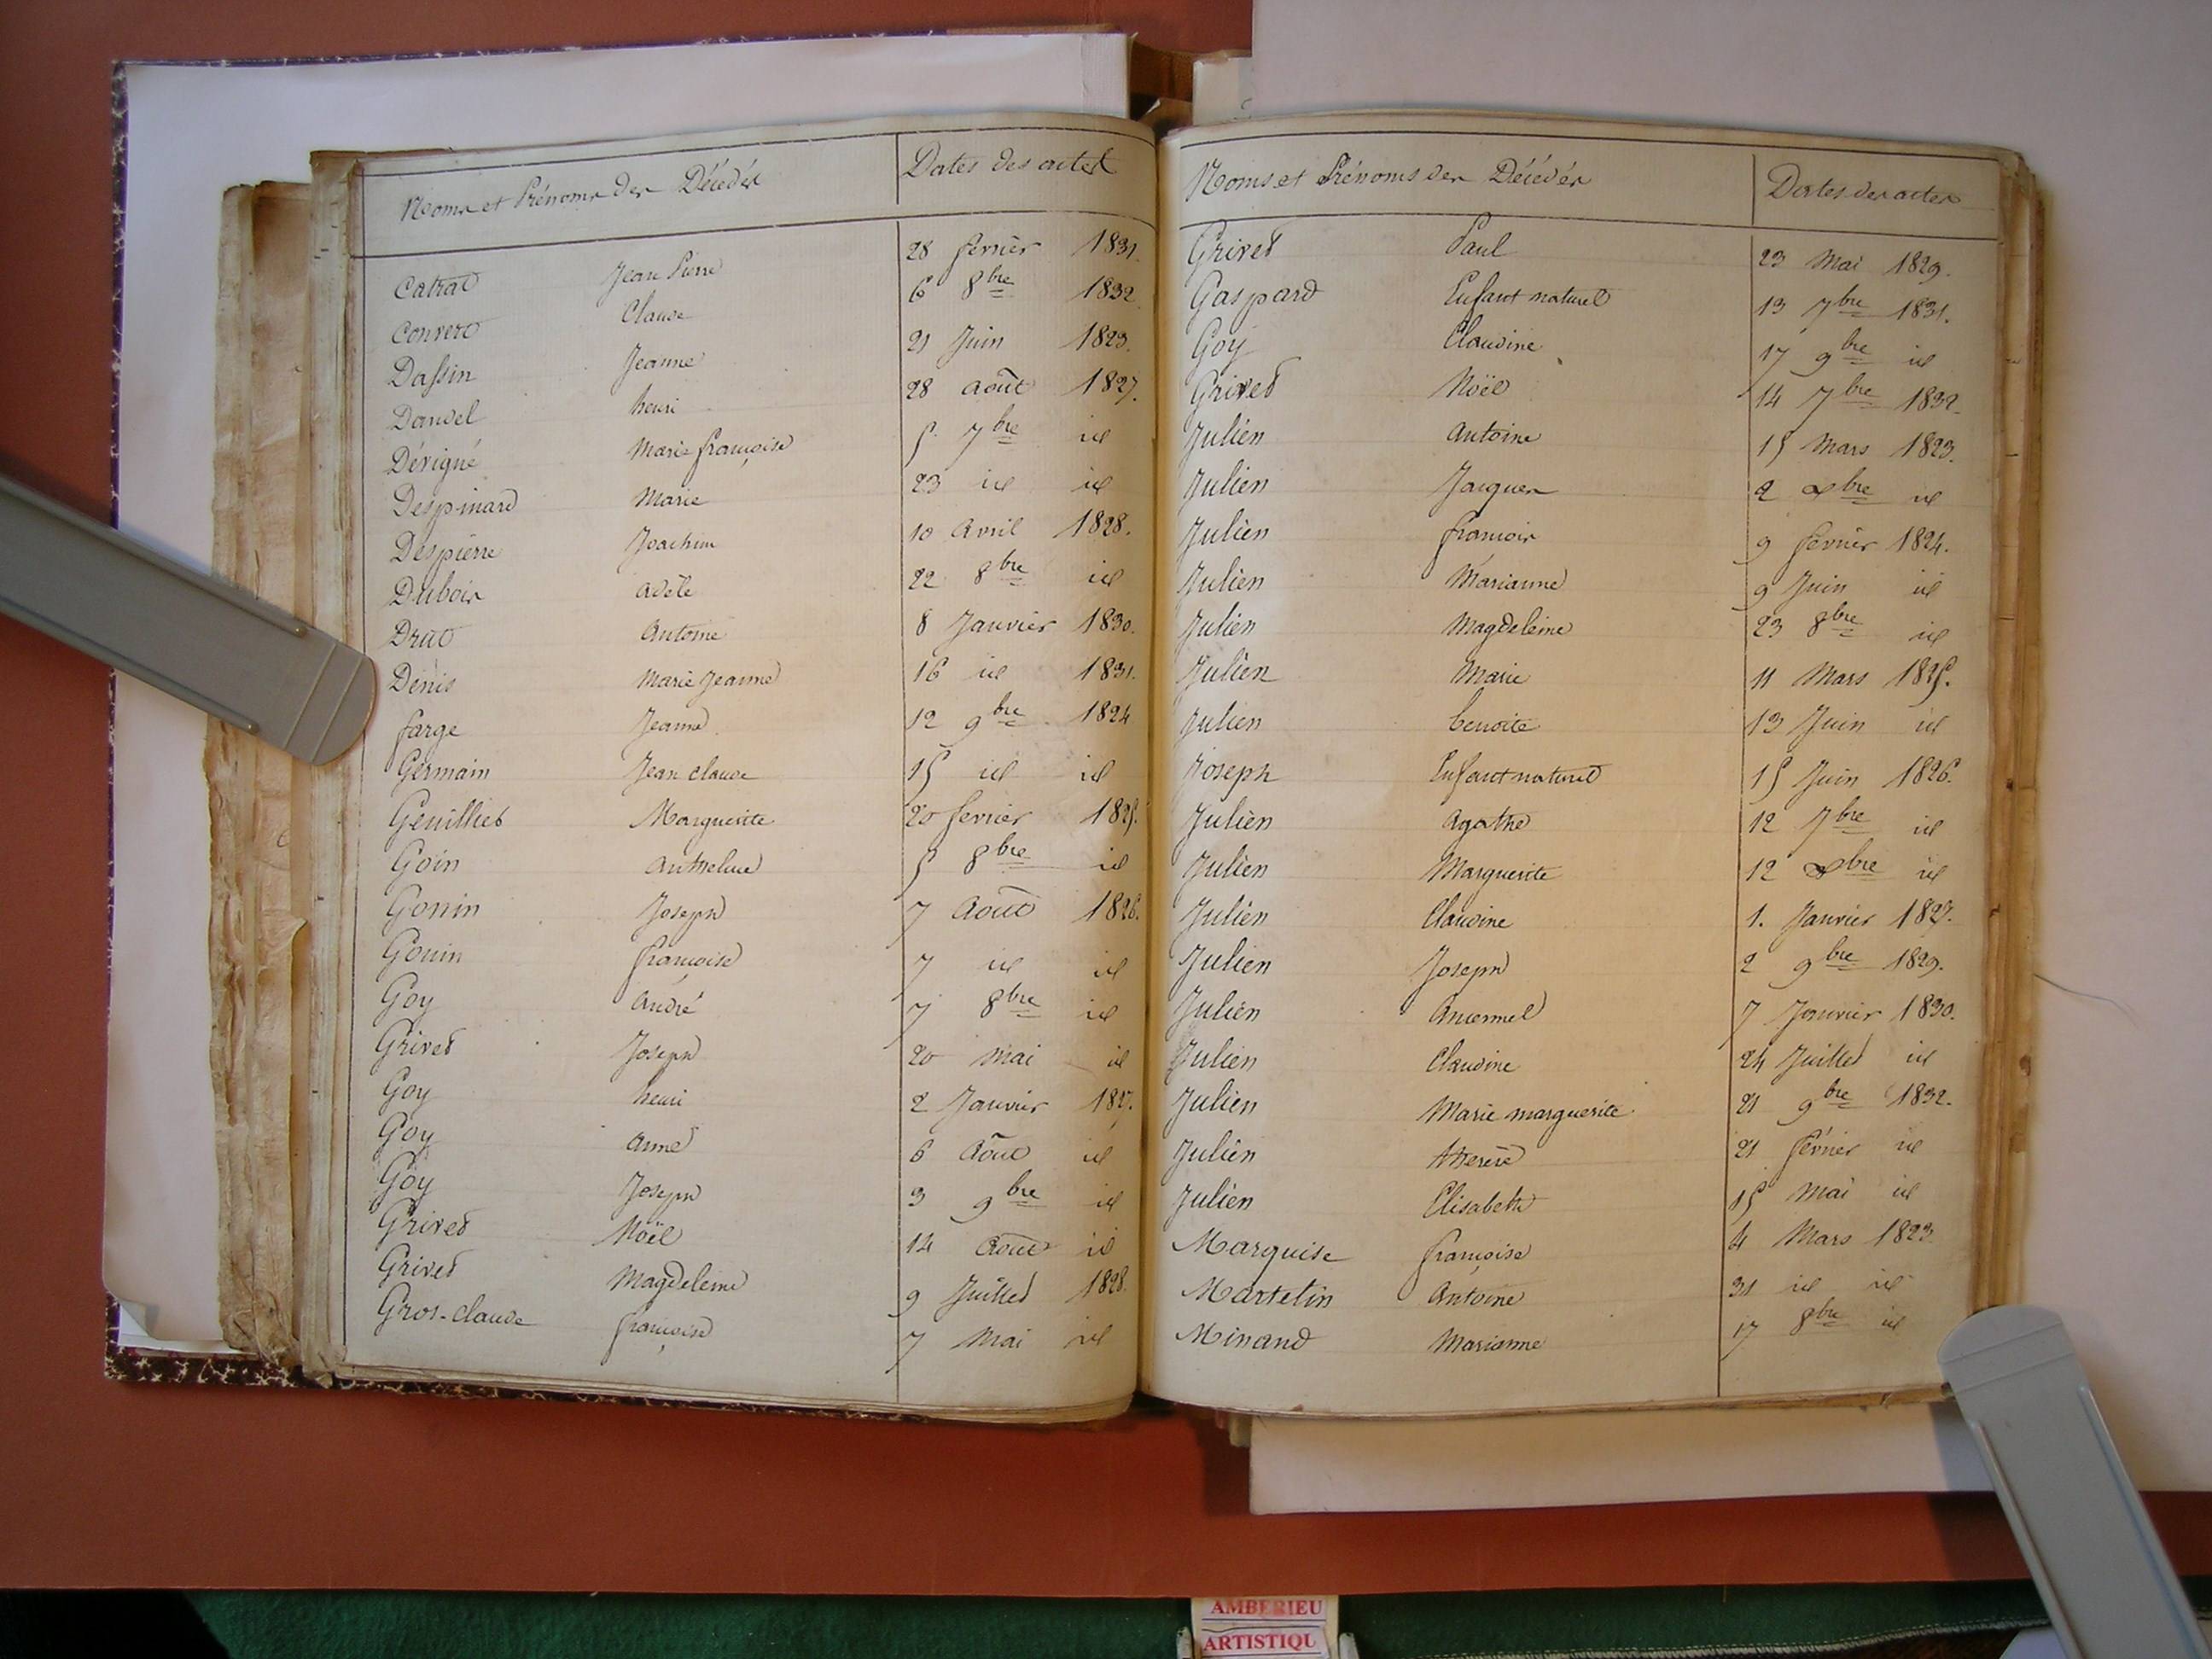 Noms et Prénoms des Décédés Dates des actes
Catrat Jean Pierre 28 fevrier 1831.
Convert Claude 6 8bre 1832
Dassin Jeanne 21 Juin 1823.
Dandel henri 28 août 1827.
Dérigné Marie françoise 5 7bre id
Despinard Marie 23 id id
Despierre Joachim 10 Avril 1828.
Dubois adèle 22 8bre id
Drut Antoine 8 Janvier 1830.
Dénis Marie Jeanne 16 id 1831.
farge Jeanne 12 9bre 1824
Germain Jean claude 15 id id
Genilliet Marguerite 20 fevrier 1825.
Goin Anthelme 5 8bre id
Gonin Joseph 7 Août 1826.
Gonin françoise 7 id id
Goy André 7 8bre id
Grivet Joseph 20 Mai id
Goy henri 2 Janvier 1827.
Goy anne 6 Août id
Goy Joseph 3 9bre id
Grivet Noël 14 Août id
Grivet Magdeleine 9 Juillet 1828.
Gros-claude françoise 7 Mai id
Noms et Prénoms des Décédés Dates des actes
Grivet Paul 23 Mai 1829.
Gaspard Enfant naturel 13 7bre 1831.
Goy Claudine 17 9bre id
Grivet Noël 14 7bre 1832.
Julien Antoine 15 Mars 1823.
Julien Jacques 2 Xbre id
Julien françois 9 fevrier 1824.
Julien Marianne 9 Juin id
Julien Magdeleine 23 8bre id
Julien Marie 11 Mars 1825.
Julien benoite 13 Juin id
Joseph Enfant naturel 15 Juin 1826.
Julien Agathe 12 7bre id
Julien Marguerite 12 Xbre id
Julien Claudine 1. Janvier 1827.
Julien Joseph 2 9bre 1829.
Julien 7 Janvier 1830.
Julien Claudine 24 Juillet id
Julien Marie marguerite 21 9bre 1832.
Julien therèse 21 février id
Julien Elisabeth 15 Mai id
Marquise françoise 4 Mars 1823.
Martelin Antoine 31 id id
Minand Marianne 17 8bre id
AMBERIEU
ARTISTIQU